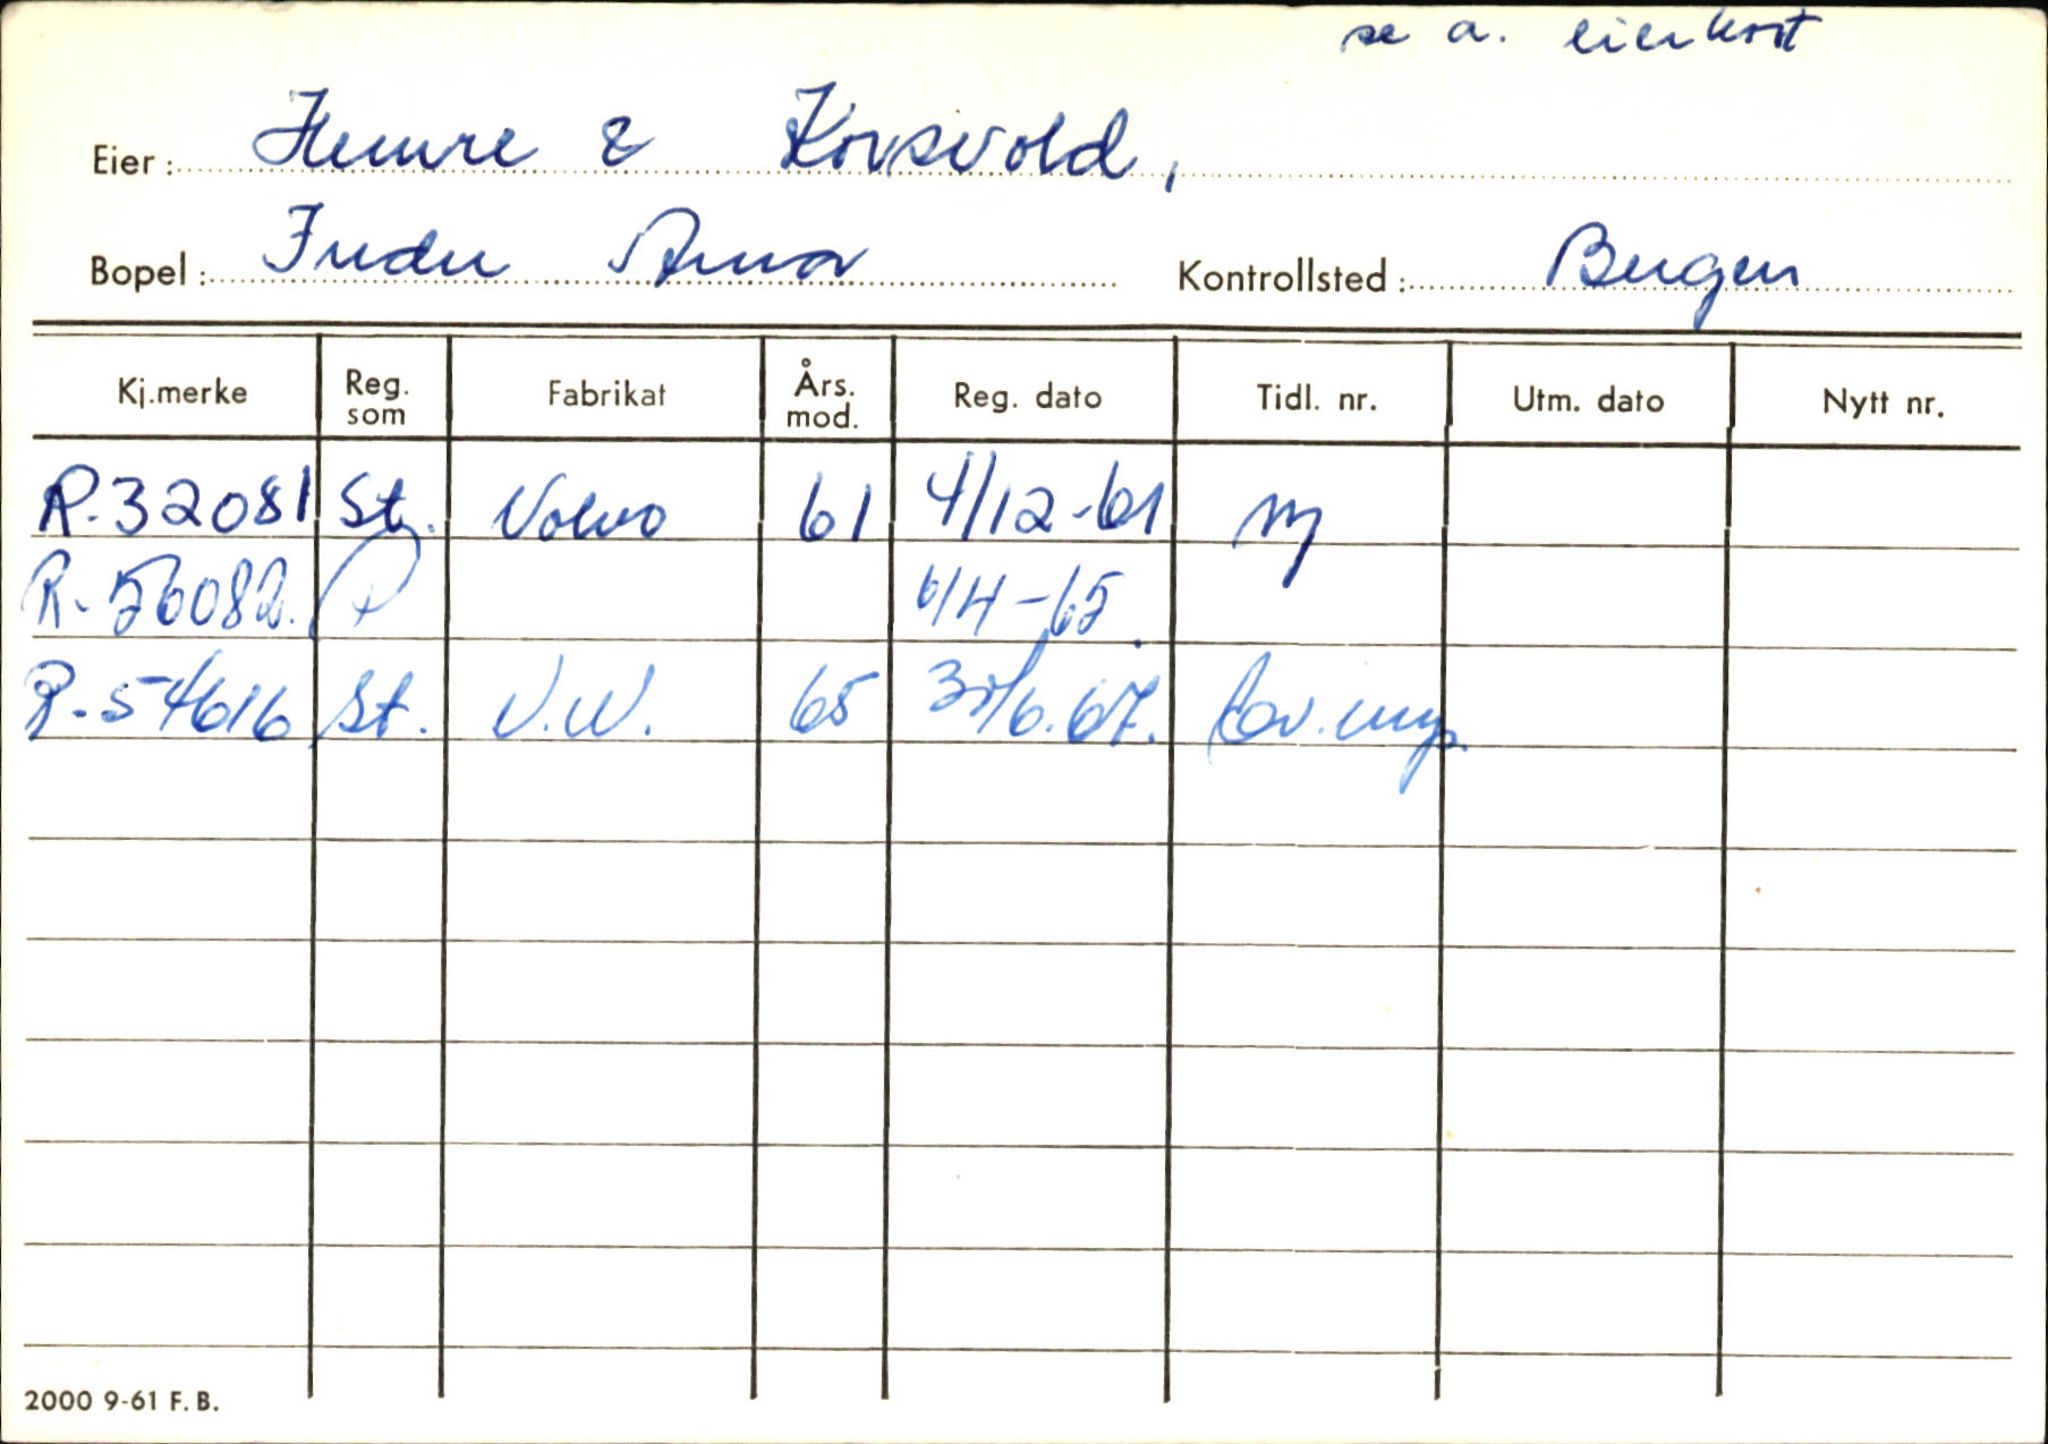 se a. eierkort
Eier: Hemre & Korsvold,
Bopel: Indre Arna Kontrollsted: Bergen
Kj.merke Reg. som Fabrikat Års. mod. Reg. dato Tidl. nr. Utm. dato Nytt nr.
R-32081 St. Volvo 61 4/12-61 ny
R-56082. P 6/4-65.
R-54616 St. V.W. 65 /6.67.
2000 9-61 F. B.